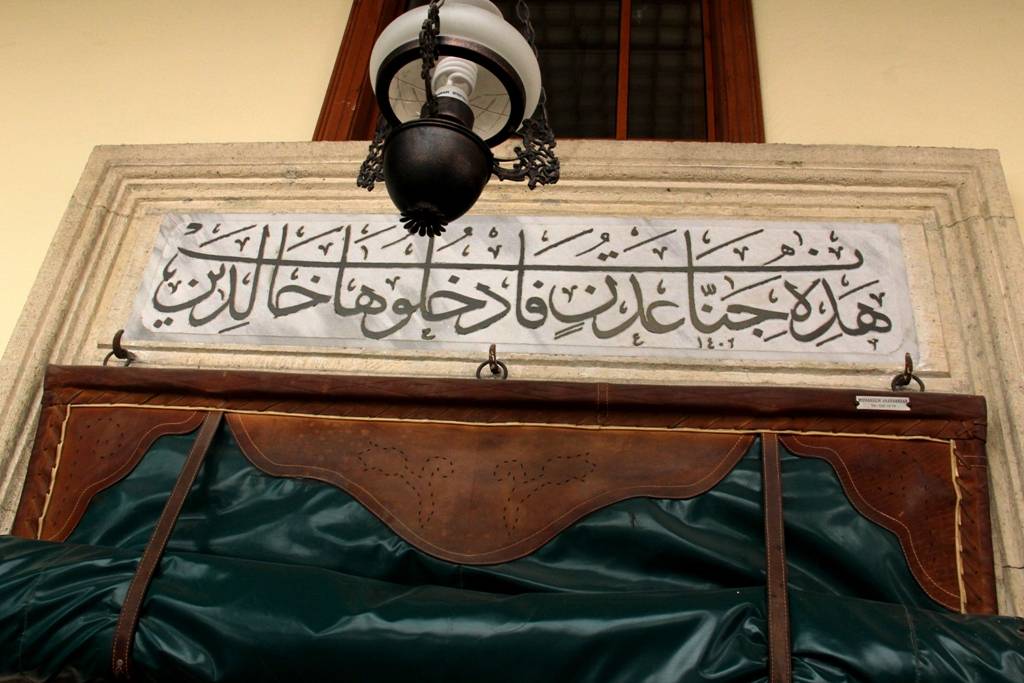 هَذِهِ جَنَّاتُ عَدْنٍ فَادْخُلُوهَا خَالِدِينَ
١٤٠٢